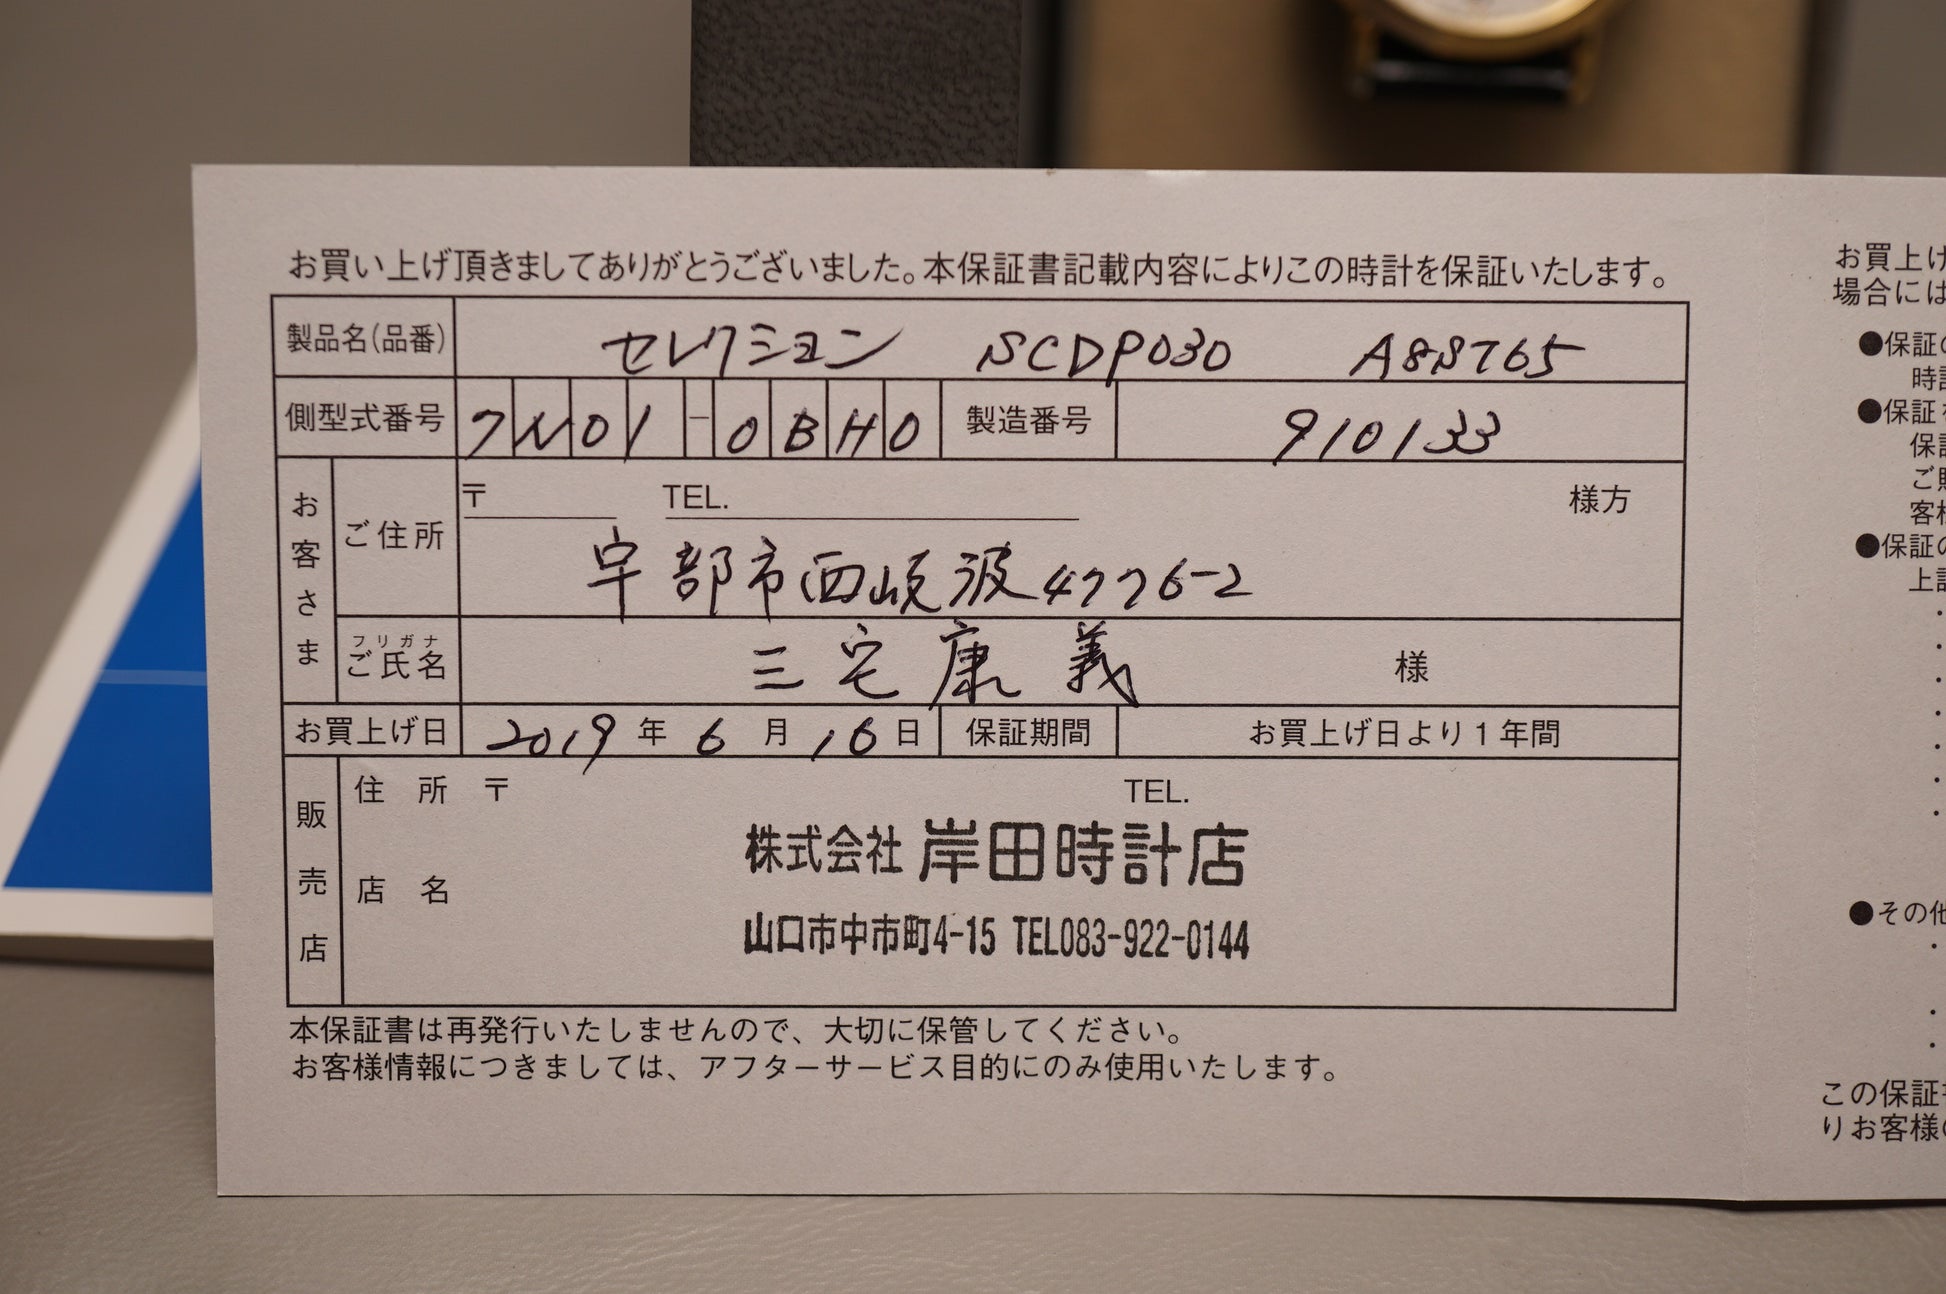 お買い上げ頂きましてありがとうございました。本保証書記載内容によりこの時計を保証いたします。
製品名(品番) セレクション SCDP030 A8S765
側型式番号 7N01-0BH0 製造番号 910133
お客さま
ご住所 〒 TEL. 様方
宇部市西岐波4776-2
フリガナ
ご氏名 三宅康義 様
お買上げ日 2019年6月16日 保証期間 お買上げ日より1年間
販売店
住所 〒 TEL.
株式会社 岸田時計店
店名
山口市中市町4-15 TEL083-922-0144
本保証書は再発行いたしませんので、大切に保管してください。
お客様情報につきましては、アフターサービス目的にのみ使用いたします。
お買上げ
場合には
●保証の
時計
●保証を
保証
ご
客様
●保証の
上記
・
・
・
・
・
・
・
●その他
・
・
・
この保証書
りお客様の